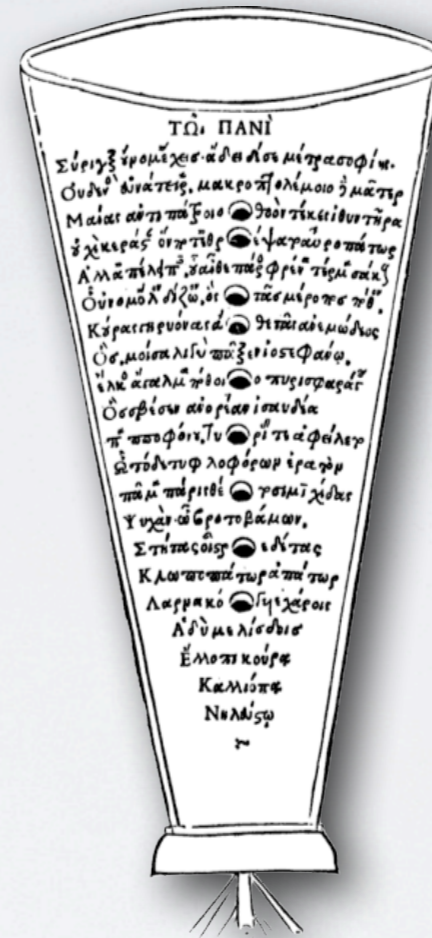 ΤΩι ΠΑΝΙ
Σύριγξ οὔνομ' ἔχεις· ᾄδει δέ σε μέτρα σοφίης.
Οὐδενὸς εὐνάτειρα, μακροπτολέμοιο δὲ μᾶτερ
Μαίας ἀντιπάτροιο θοὸν τέκες ἰθυντῆρα
οὐχὶ κεράσταν ὅν ποτε θρέψατο ταυροπάτωρ
Ἀλλ' φρένα τέρμα σάκους
Οὔνομ' ὅλον δίζωον, ὃς τᾶς μέροπος πόθον,
Κύρας γηρυόνας θε τᾶς ἀνεμώδεος
Ὃς μοίσᾳ λιγὺ πᾶξεν ἰοστεφάνῳ.
ἕλκος ἄγαλμα πόθοιο πυρισφαράγου
Ὃς σβέσεν ἀνορέαν ἰσαυδέα
παπποφόνου, Τυρίας τε ἀφείλετο
Ὧ τόδε τυφλοφόρων ἐρατὸν
πᾶμα πάρις θέτο σιμιχίδας
Ψυχὰν ὦ βροτοβάμων.
Στήτας οἶστρε
Κλωποπάτωρ ἀπάτωρ
Λαρνακόγυιε χάροις
Ἁδὺ μελίσδοις
Ἔλλοπι κούρᾳ
Καλλιόπᾳ
Νηλεύστῳ